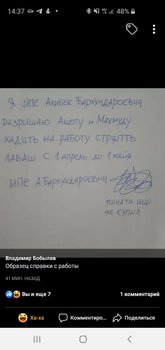 14:37
48%
Я ИПЕ Алибек Бархундароевич
разрешаю Ашоту и Махмуду
хадить на работу стряпть
лаваш с 1 апрель до 1 мая
ИПЕ А Бархундароевич
пичать ищо
не купил
Владимир Бобылов
Образец справки с работы
41 МИН. НАЗАД
Вы и еще 7
1 комментарий
Ха-ха
Комментиров...
Поделиться